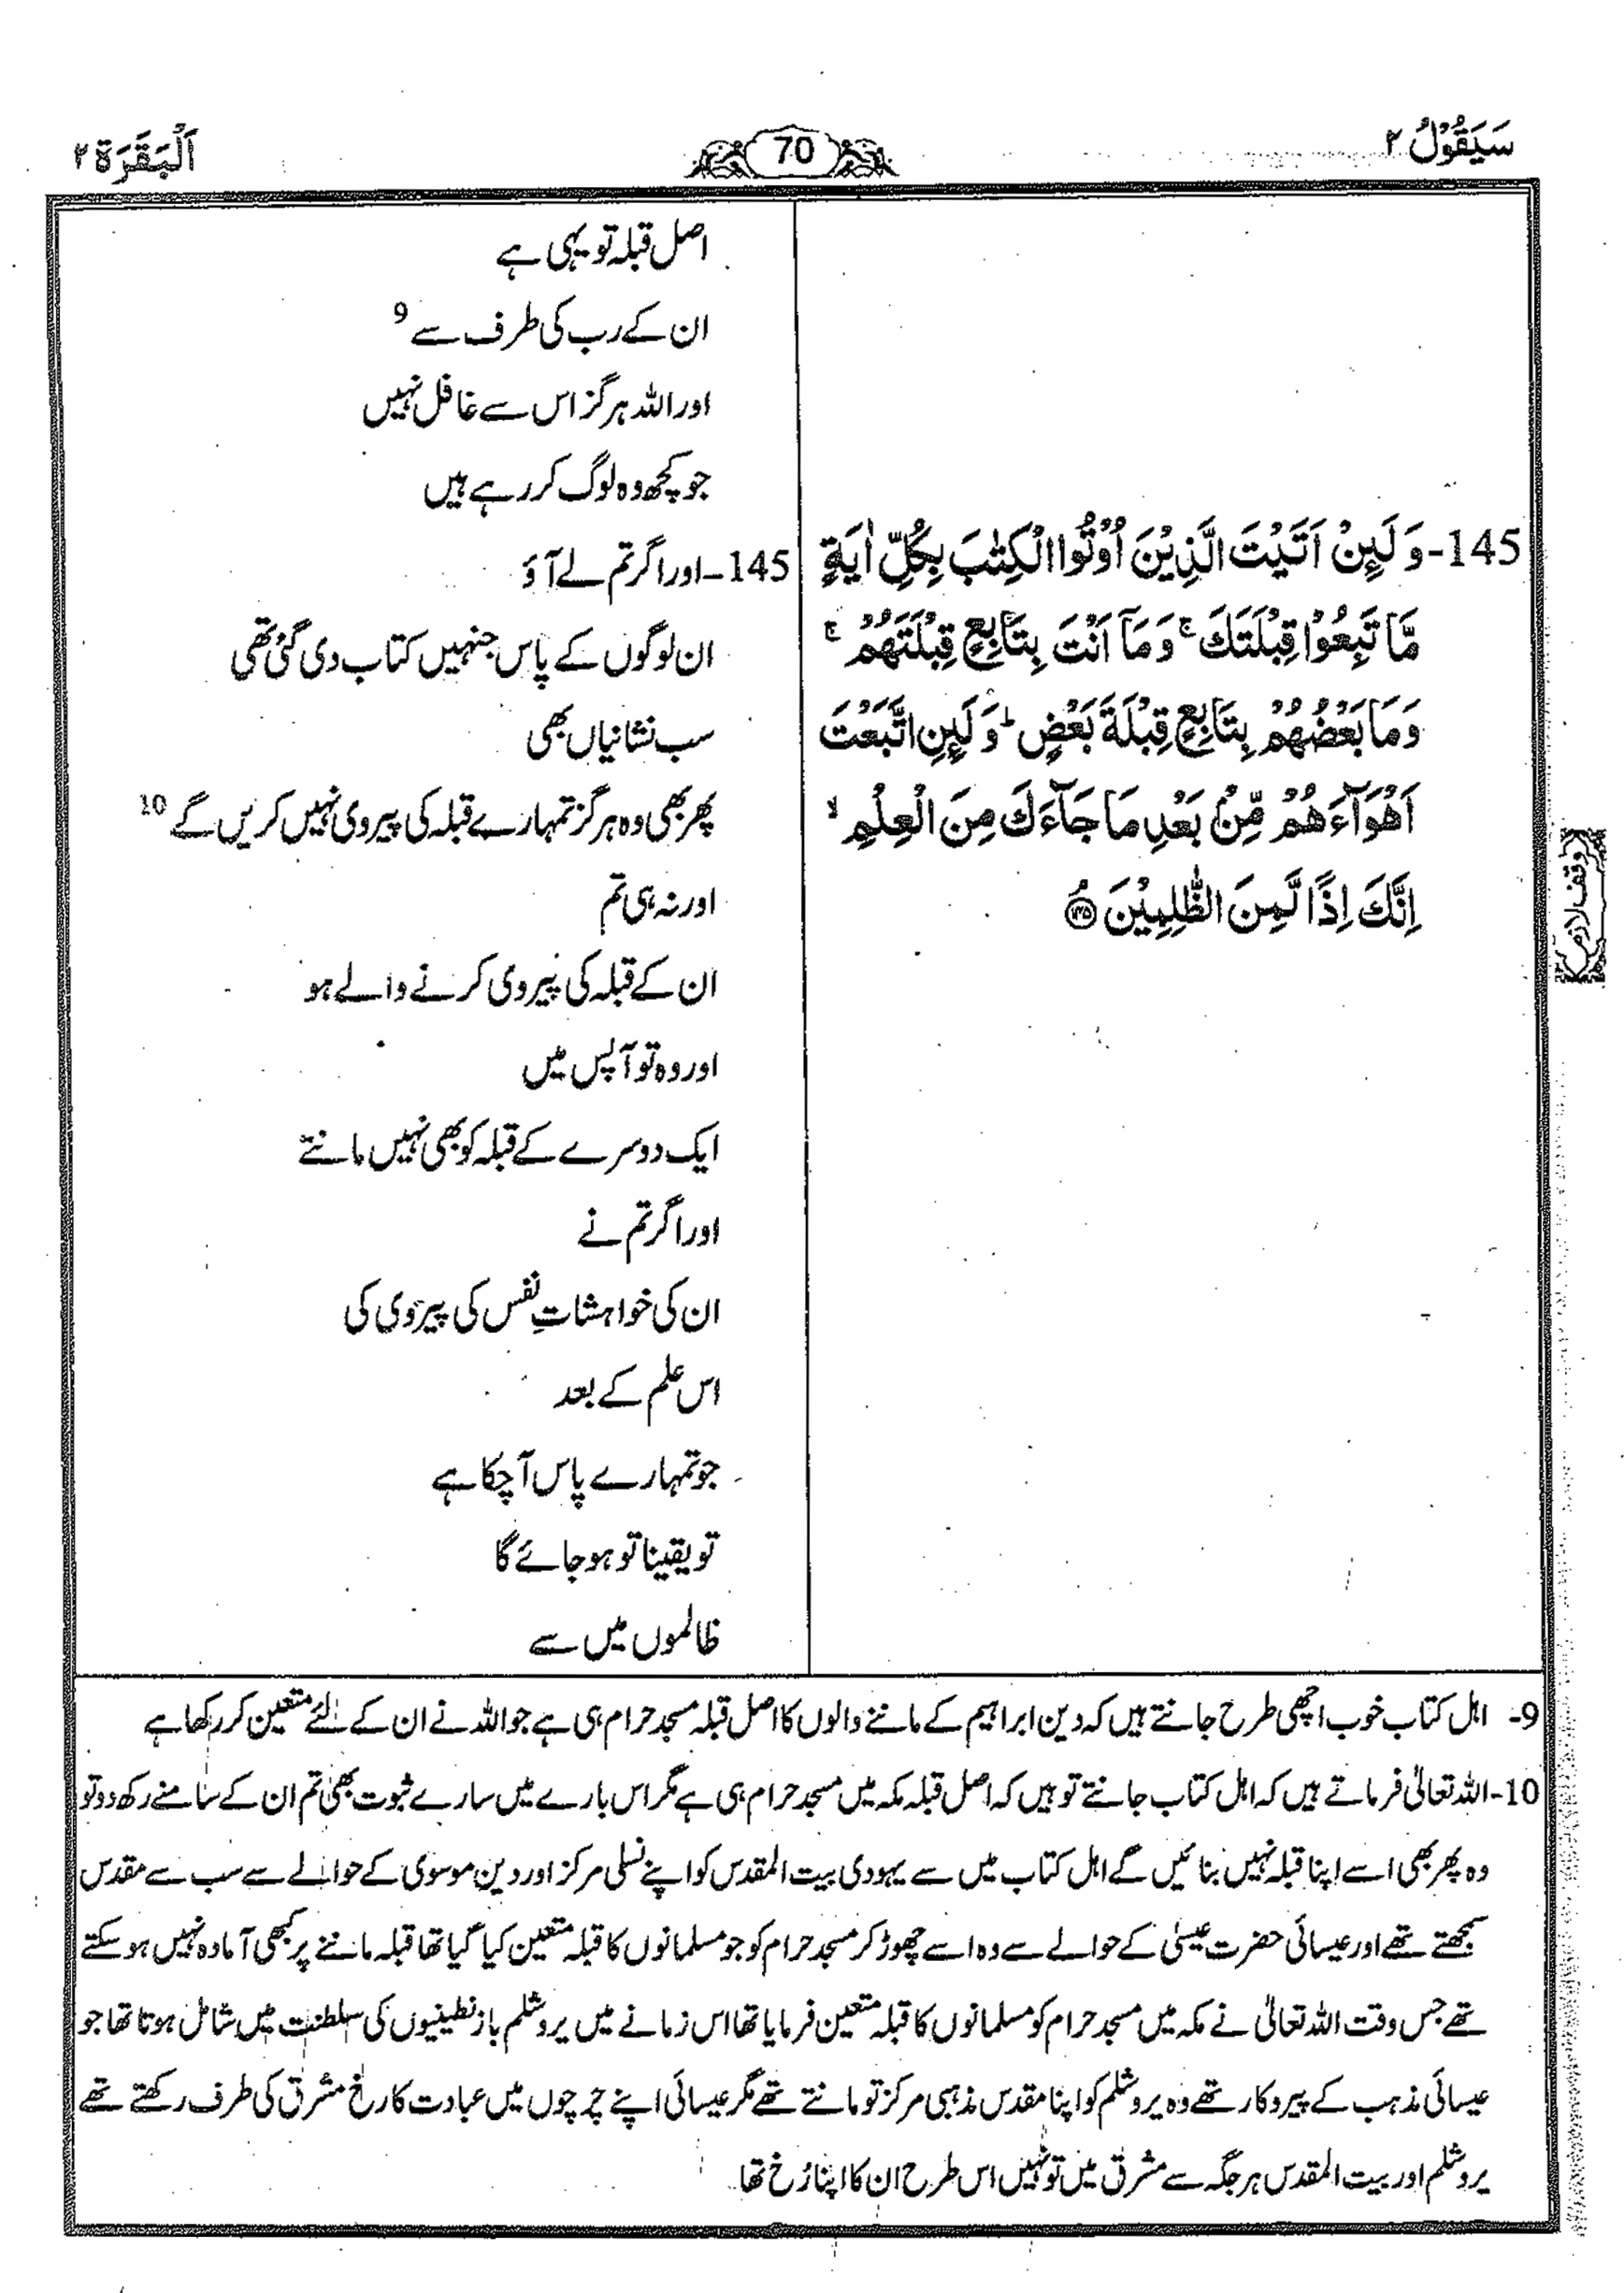 سَيَقُوْلُ ٢
70
اَلْبَقَرَة ٢
145-وَ لَىِٕنْ اَتَيْتَ الَّذِيْنَ اُوْتُوا الْكِتٰبَ بِكُلِّ اٰيَةٍ
مَّا تَبِعُوْا قِبْلَتَكَ ۚ وَ مَاۤ اَنْتَ بِتَابِعٍ قِبْلَتَهُمْ ۚ
وَ مَا بَعْضُهُمْ بِتَابِعٍ قِبْلَةَ بَعْضٍ ؕ وَ لَىِٕنِ اتَّبَعْتَ
اَهْوَآءَهُمْ مِّنْۢ بَعْدِ مَا جَآءَكَ مِنَ الْعِلْمِ ۙ
اِنَّكَ اِذًا لَّمِنَ الظّٰلِمِيْنَ ۘ ۝١٤٥
وقف لازم
اصل قبلہ تو یہی ہے
ان کے رب کی طرف سے 9
اور اللہ ہرگز اس سے غافل نہیں
جو کچھ وہ لوگ کر رہے ہیں
145-اور اگر تم لے آؤ
ان لوگوں کے پاس جنہیں کتاب دی گئی تھی
سب نشانیاں بھی
پھر بھی وہ ہرگز تمہارے قبلہ کی پیروی نہیں کریں گے 10
اور نہ ہی تم
ان کے قبلہ کی پیروی کرنے والے ہو
اور وہ تو آپس میں
ایک دوسرے کے قبلہ کو بھی نہیں مانتے
اور اگر تم نے
ان کی خواہشاتِ نفس کی پیروی کی
اس علم کے بعد
جو تمہارے پاس آ چکا ہے
تو یقینا تو ہو جائے گا
ظالموں میں سے
9- اہل کتاب خوب اچھی طرح جانتے ہیں کہ دین ابراہیم کے ماننے والوں کا اصل قبلہ مسجد حرام ہی ہے جو اللہ نے ان کے لئے متعین کر رکھا ہے
10-اللہ تعالیٰ فرماتے ہیں کہ اہل کتاب جانتے تو ہیں کہ اصل قبلہ مکہ میں مسجد حرام ہی ہے مگر اس بارے میں سارے ثبوت بھی تم ان کے سامنے رکھ دو تو
وہ پھر بھی اسے اپنا قبلہ نہیں بنائیں گے اہل کتاب میں سے یہودی بیت المقدس کو اپنے نسلی مرکز اور دین موسوی کے حوالے سے سب سے مقدس
سمجھتے تھے اور عیسائی حضرت عیسیٰ کے حوالے سے وہ اسے چھوڑ کر مسجد حرام کو جو مسلمانوں کا قبلہ متعین کیا گیا تھا قبلہ ماننے پر کبھی آمادہ نہیں ہو سکتے
تھے جس وقت اللہ تعالیٰ نے مکہ میں مسجد حرام کو مسلمانوں کا قبلہ متعین فرمایا تھا اس زمانے میں یروشلم بازنطینیوں کی سلطنت میں شامل ہوتا تھا جو
عیسائی مذہب کے پیروکار تھے وہ یروشلم کو اپنا مقدس مذہبی مرکز تو مانتے تھے مگر عیسائی اپنے چرچوں میں عبادت کا رخ مشرق کی طرف رکھتے تھے
یروشلم اور بیت المقدس ہر جگہ سے مشرق میں تو نہیں اس طرح ان کا اپنا رُخ تھا